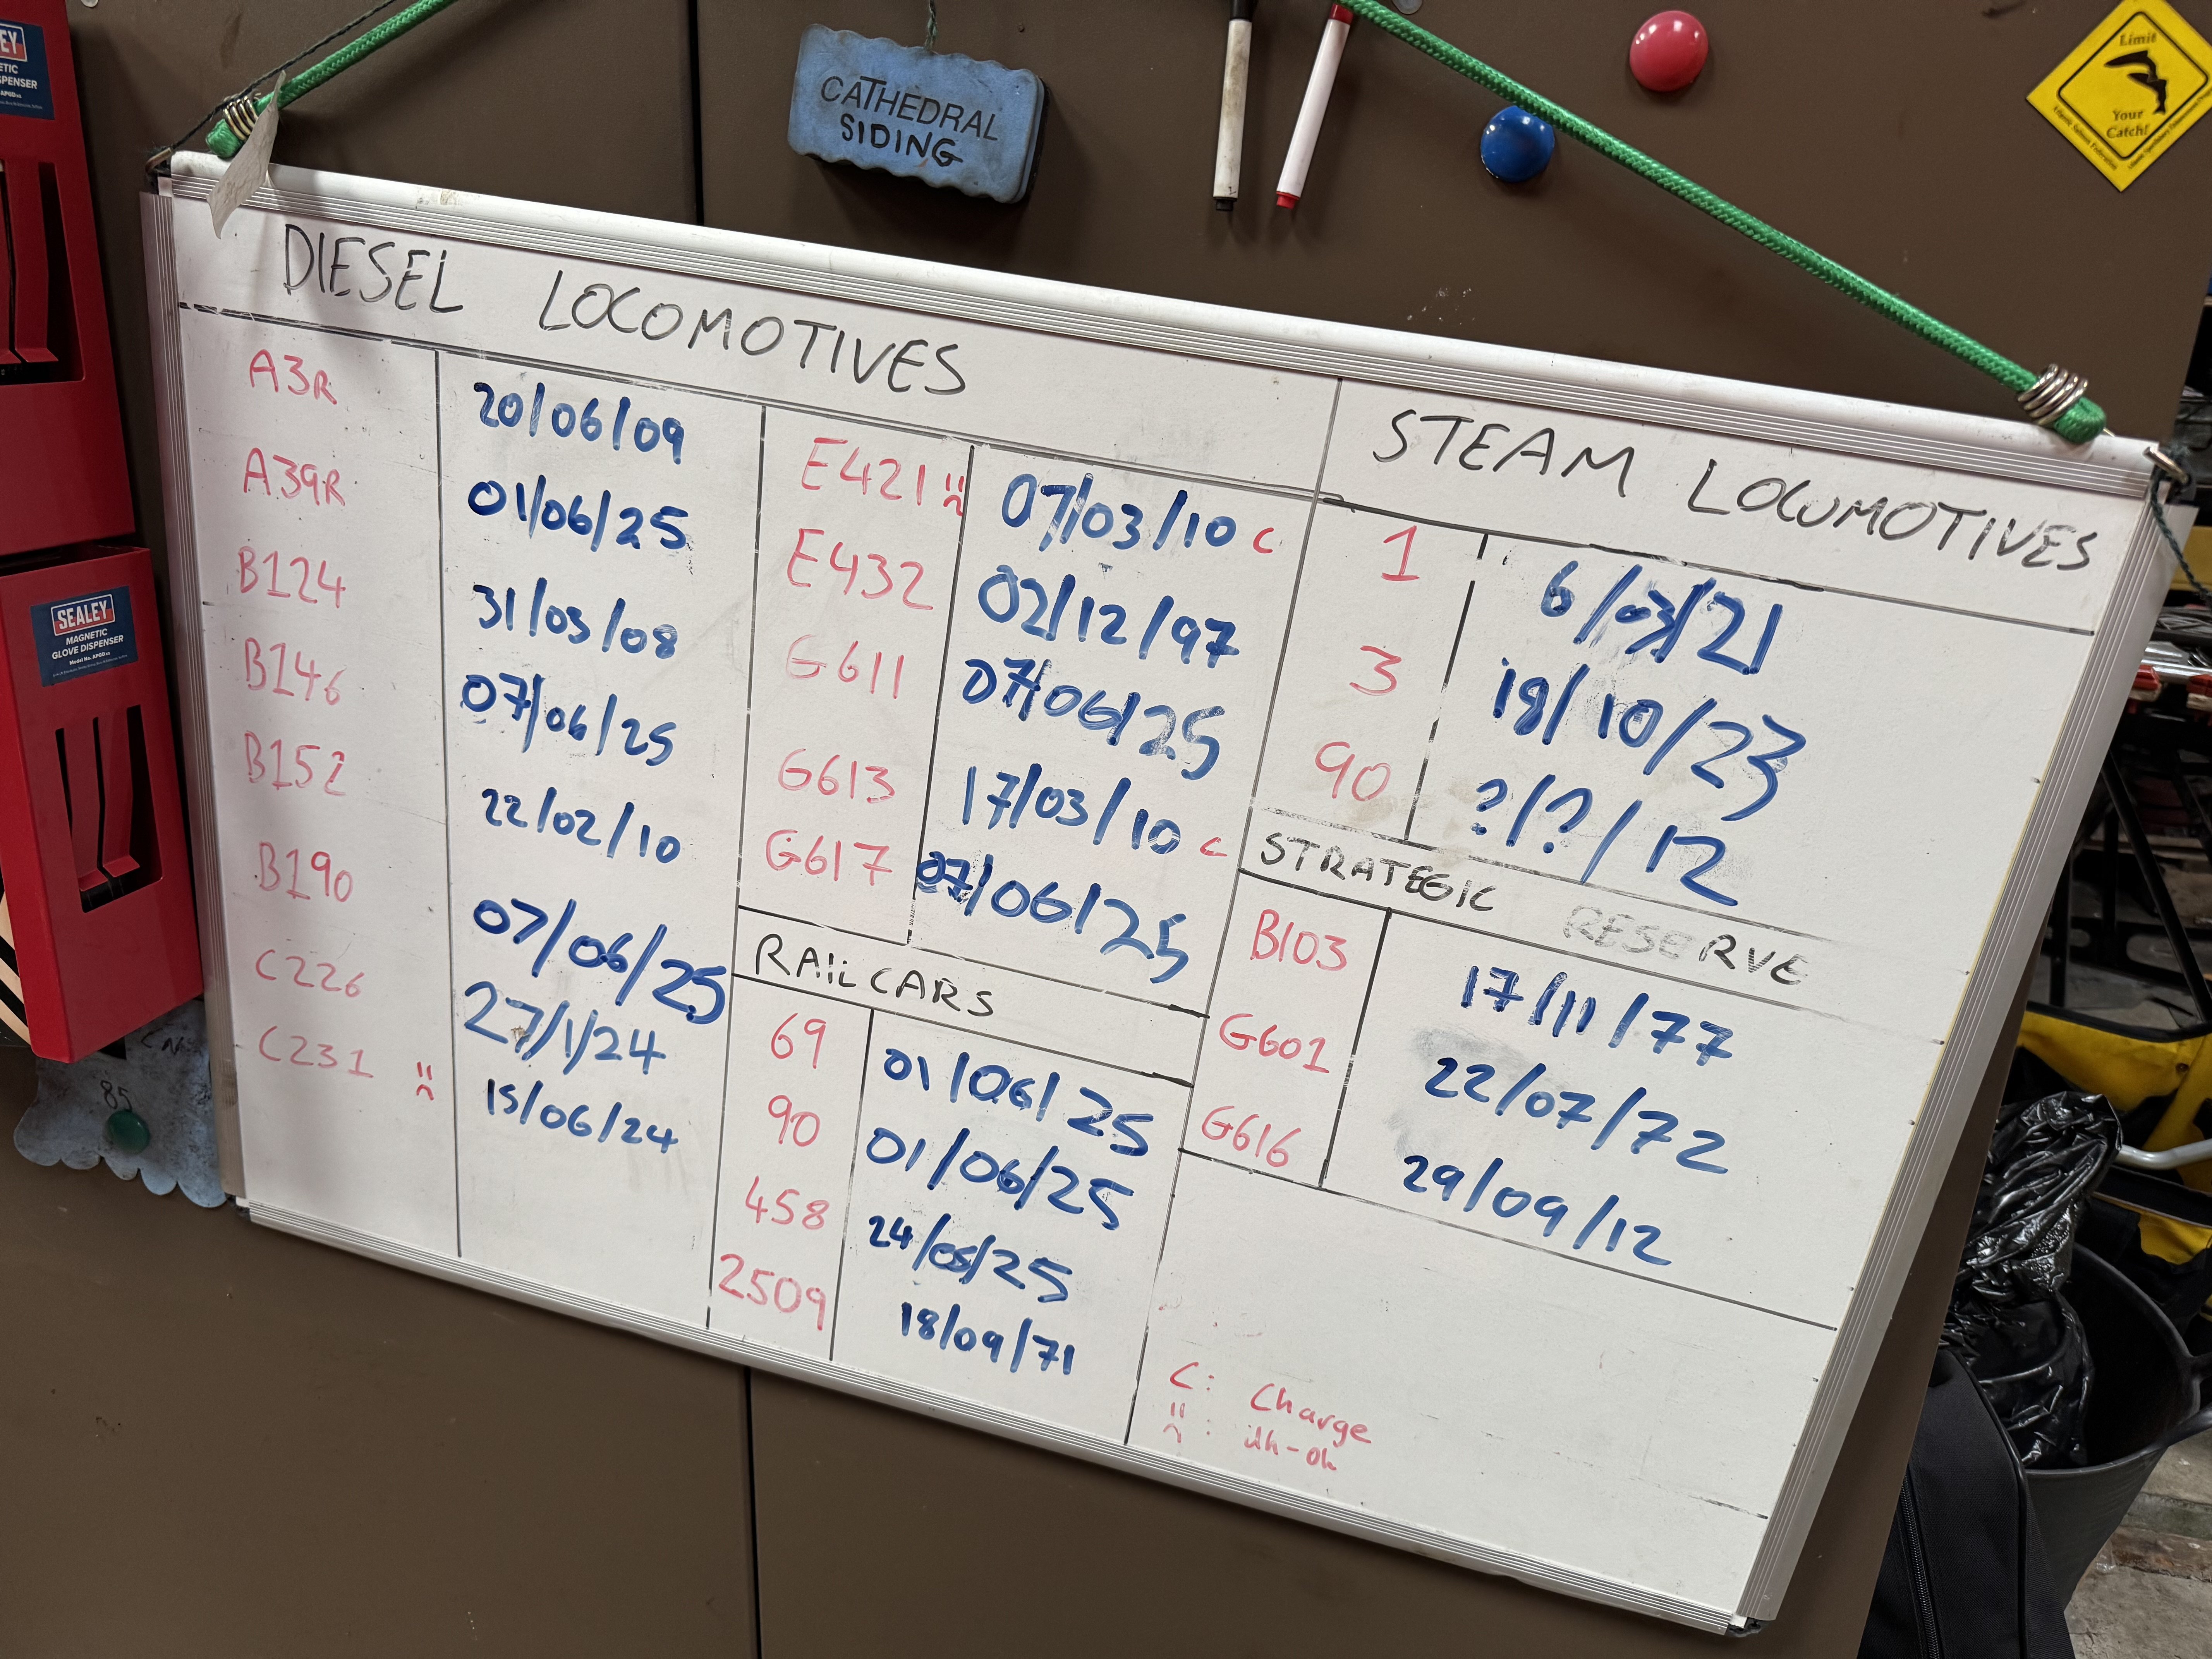 CATHEDRAL
SIDING
Limit
Your
Catch!
SEALEY
MAGNETIC
GLOVE DISPENSER
85
DIESEL LOCOMOTIVES
A3R 20/06/09
A39R 01/06/25
B124 31/03/08
B146 07/06/25
B152 22/02/10
B190 07/06/25
C226 27/1/24
C231 :( 15/06/24
E421 :( 07/03/10 C
E432 02/12/97
G611 07/06/25
G613 17/03/10 C
G617 07/06/25
RAILCARS
69 01/06/25
90 01/06/25
458 24/05/25
2509 18/09/71
STEAM LOCOMOTIVES
1 6/03/21
3 18/10/23
90 ?/?/12
STRATEGIC RESERVE
B103 17/11/77
G601 22/07/72
G616 29/09/12
C: Charge
:( : uh-oh